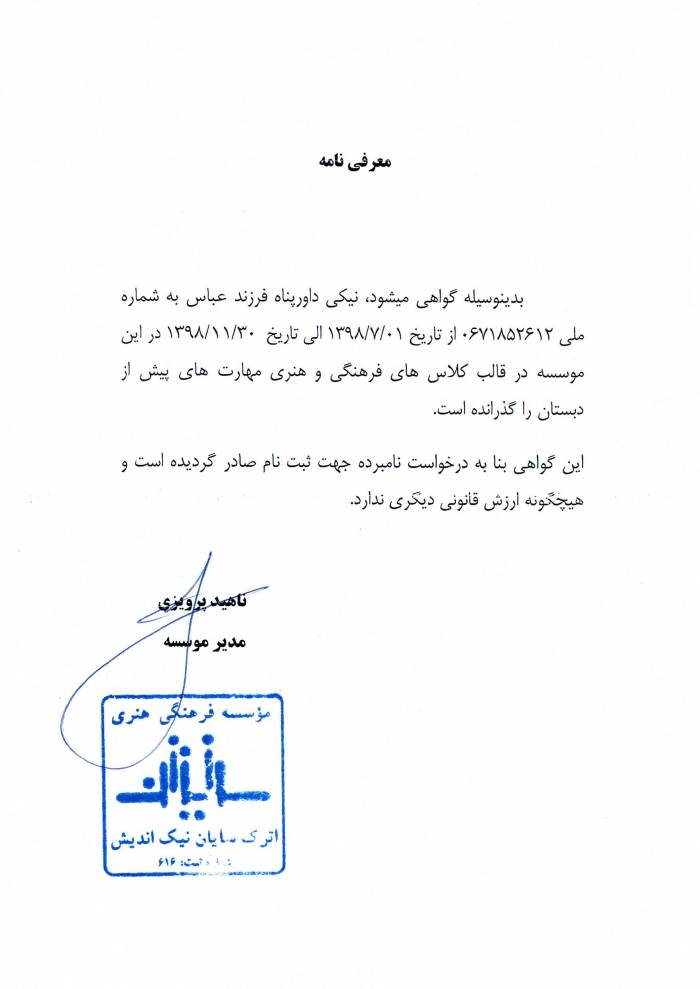 معرفی نامه
بدینوسیله گواهی میشود، نیکی داورپناه فرزند عباس به شماره
ملی ۰۶۷۱۸۵۲۶۱۲ از تاریخ ۱۳۹۸/۷/۰۱ الی تاریخ ۱۳۹۸/۱۱/۳۰ در این
موسسه در قالب کلاس های فرهنگی و هنری مهارت های پیش از
دبستان را گذرانده است.
این گواهی بنا به درخواست نامبرده جهت ثبت نام صادر گردیده است و
هیچگونه ارزش قانونی دیگری ندارد.
ناهید پرویزی
مدیر موسسه
مؤسسه فرهنگی هنری
اترک سایان نیک اندیش
ثبت: ۶۱۶